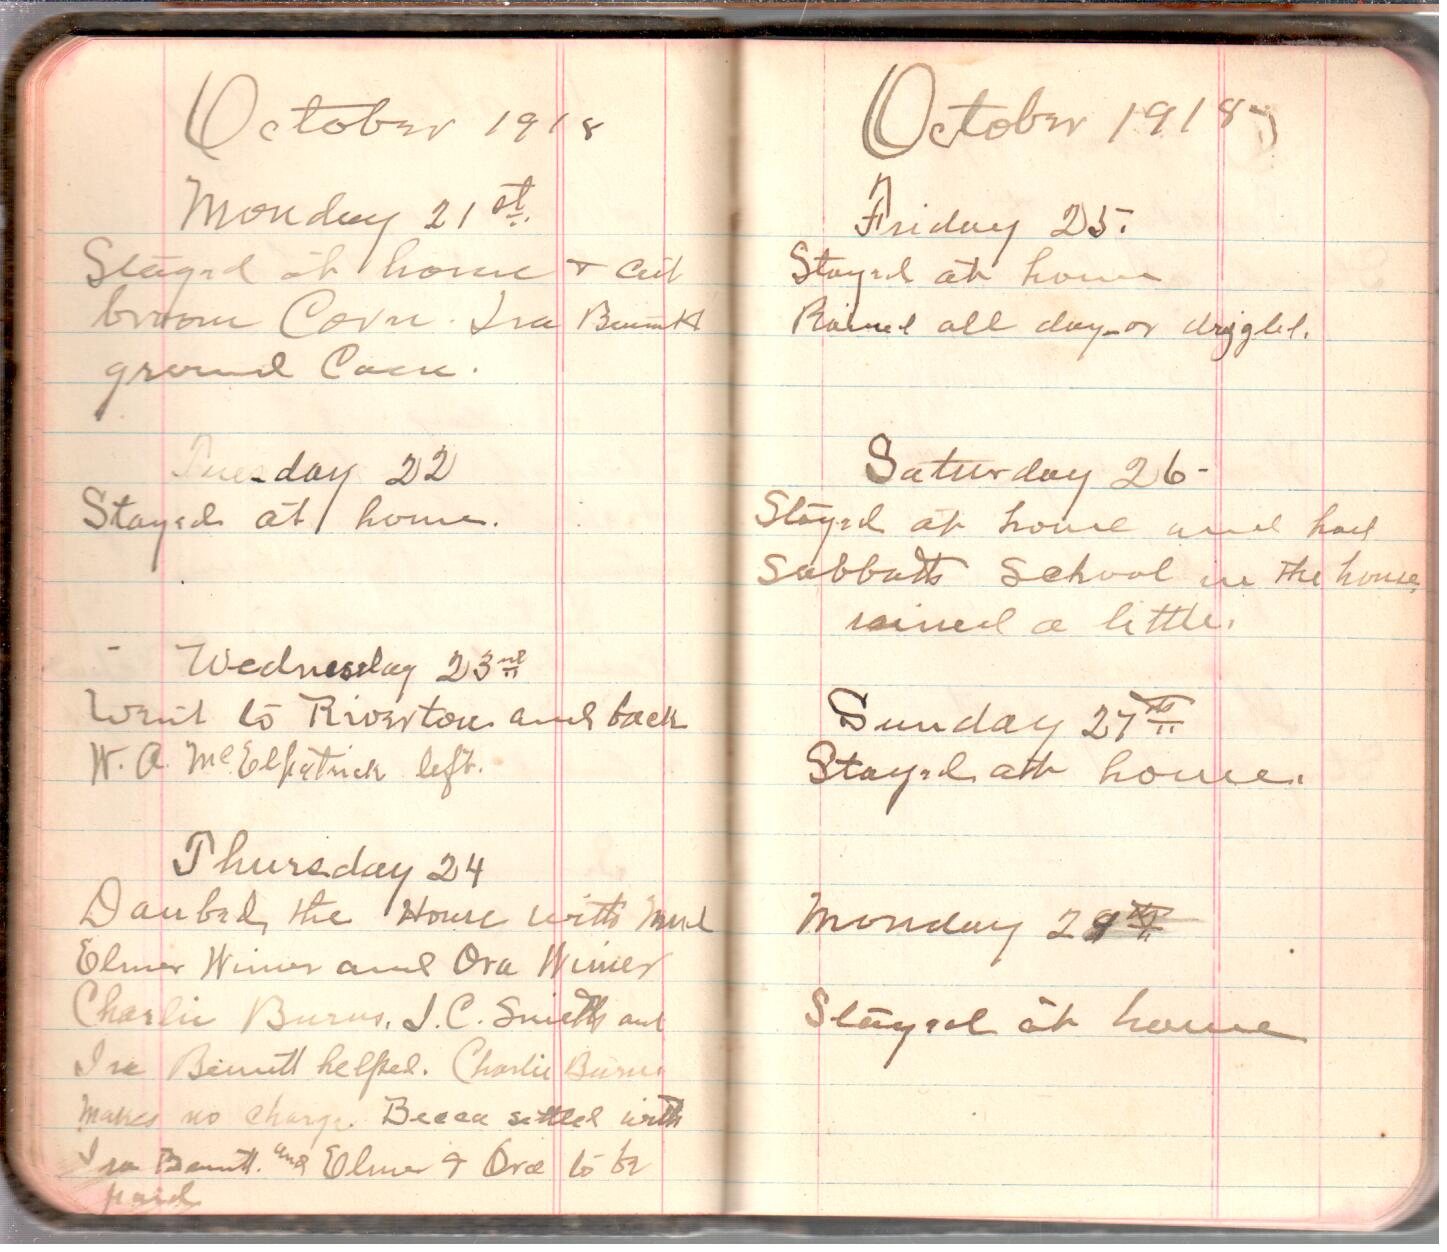 October 1918
Monday 21st.
Stayed at home & cut
broom Corn. Ira Bennett
ground Cane.
Tuesday 22
Stayed at home.
Wednesday 23rd
Went to Riverton and back
W. A. McElfatrick left.
Thursday 24
Daubed, the House with Mud
Elmer Wimer and Ora Wimer
Charlie Burns, J. C. Smith and
Ira Bennett helped. Charlie Burns
makes no charge. Becca settled with
Ira Bennett. and Elmer & Ora to be
paid
October 1918
Friday 25.
Stayed at home
Rained all day or drizzled.
Saturday 26-
Stayed at home and had
Sabbath School in the house,
rained a little.
Sunday 27th
Stayed at home.
Monday 28th
Stayed at home